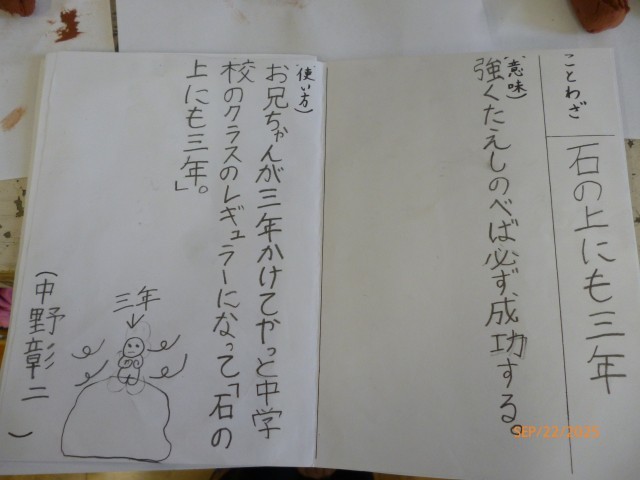 ことわざ
石の上にも三年
(意味)
強くたえしのべば必ず、成功する。
(使い方)
お兄ちゃんが三年かけてやっと中学
校のクラスのレギュラーになって「石の
上にも三年。」
三年
(中野彰二)
SEP/22/2005